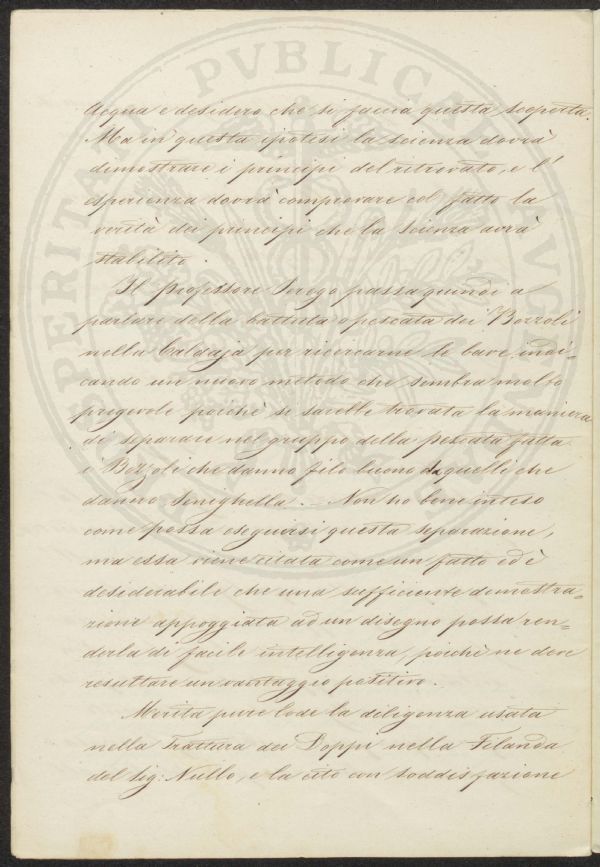 Acqua e desidero che si faccia questa scoperta.
Ma in questa ipotesi la scienza dovrà
dimostrare i principi del ritrovato, e l'
esperienza dovrà comprovare col fatto la
verità dei principi che la Scienza avrà
stabilito.
Il Professore passa quindi a
parlare della battuta o pescata dei Bozzoli
nella Caldaja per ricercarne le bave, indi-
cando un nuovo metodo che sembra molto
pregevole poichè si sarebbe trovata la maniera
di separare nel gruppo della pescata fatta
i Bozzoli che danno filo buono da quelli che
danno Sineghella. - Non ho bene inteso
come possa eseguirsi questa separazione,
ma essa viene citata come un fatto ed è
desiderabile che una sufficiente dimostra=
zione appoggiata ad un disegno possa ren=
derla di facile intelligenza, poichè ne deve
resultare un vantaggio positivo.
Merita pure lode la diligenza usata
nella Trattura dei Doppi nella Filanda
del Sig: Nullo, e la cito con soddisfazione
PVBLICAE
PERITATI